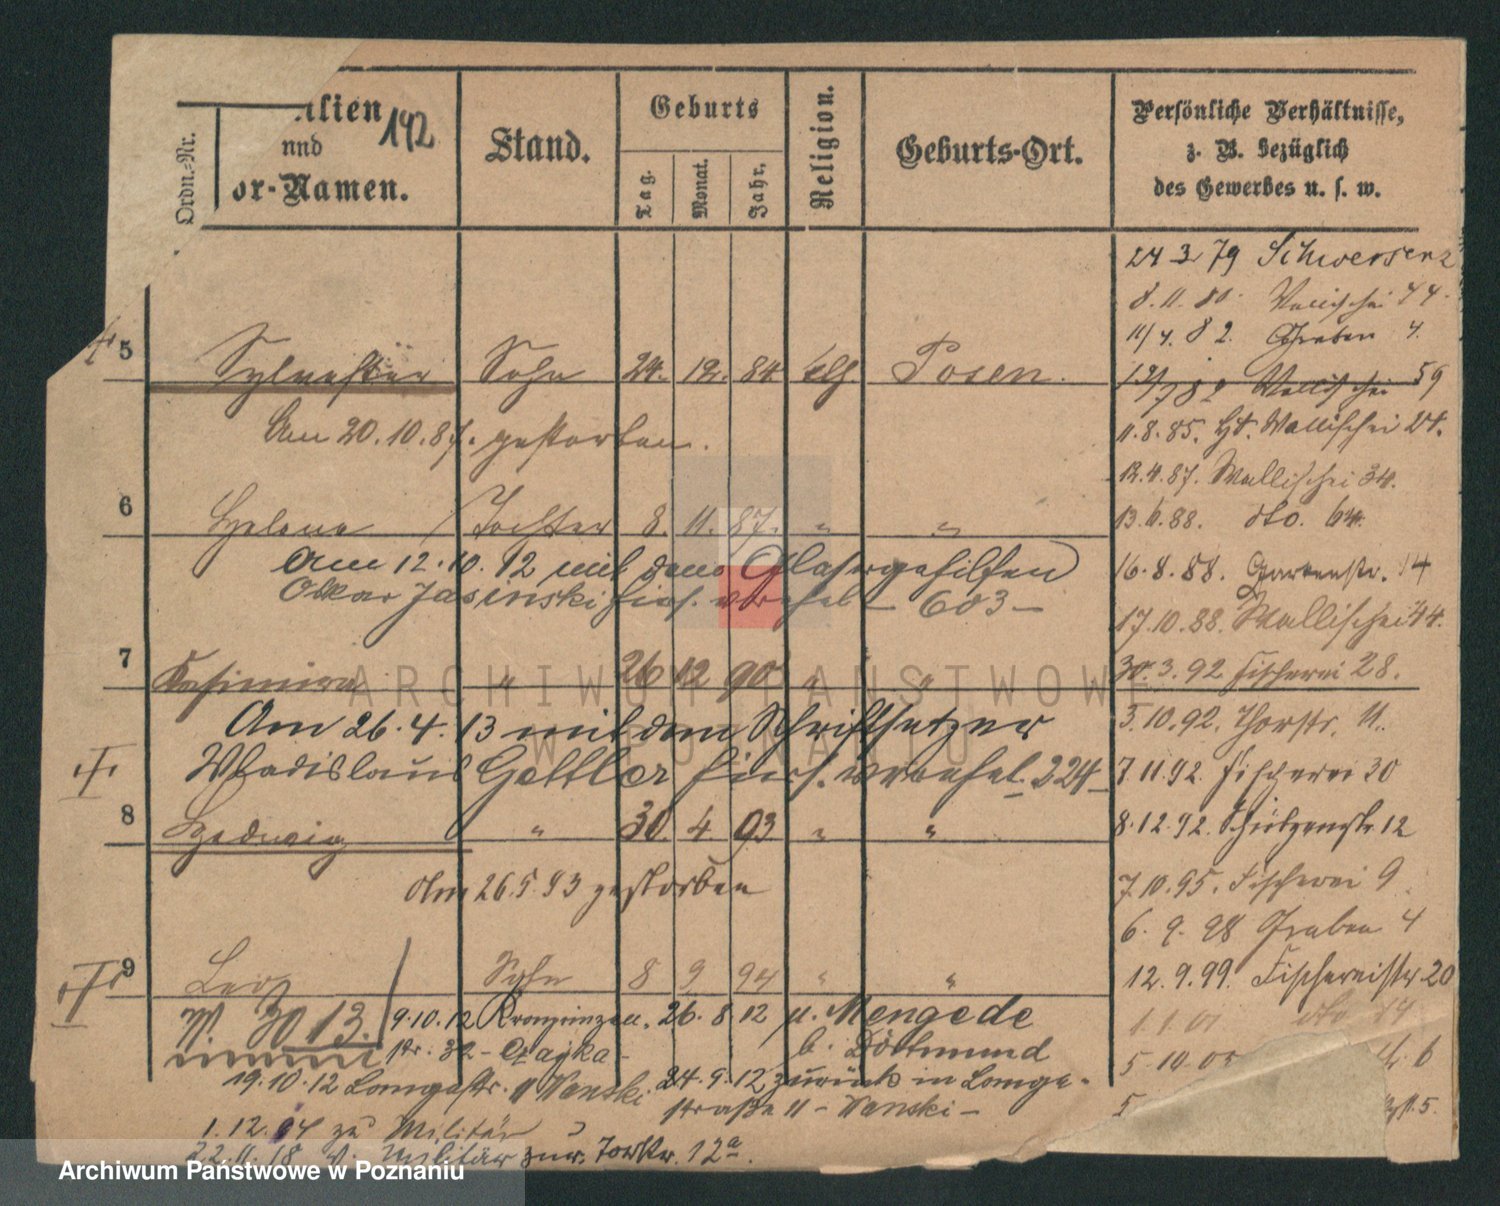 Ordn.-Nr.
ilien
und
or-Namen.
142
Stand.
Geburts
Tag.
Monat.
Jahr.
Religion.
Geburts-Ort.
Persönliche Verhältnisse,
z. B. bezüglich
des Gewerbes u. s. w.
24 3 79 Schwersenz
8.11.80. Wallischei 44.
11/4. 82. Graben 4.
5 Sylvester Sohn 24. 12. 84 kth. Posen.
Wallischei 59
Am 20.10.87. gestorben.
11.8.85. Wallischei 24.
12.4.87. Wallischei 34.
6 Helena Tochter 8. 11. 87. " "
13.6.88. dto. 64.
Am 12.10.12 mit dem Glasergehilfen
Oskar Jasinski hier. verehel. – 603 –
16.8.88. Gartenstr. 14
17.10.88. Wallischei 44.
7 Kasimira " 26 12 90 " "
30.3.92. Fischerei 28.
Am 26.4.13 mit dem Schriftsetzer
Wladislaus Gettler hier. verehel. 224
5.10.92. Thorstr. 11.
7.11.92. Fischerei 30
8 Hedwig " 30. 4 93 " "
8.12.92. Schützenstr. 12
Am 26.5.93 gestorben
7.10.95. Fischerei 9
6. 9. 98 Graben 4
9 Leo Sohn 8 9 94 " "
12.9.99. Fischereistr. 20
W 30 13.
9.10.12 Kronprinzen-
str. 32 – Czajka –
26. 8 12 n. Mengede
b. Dortmund
1.1.01 dto 14
19.10.12 Langestr. 11 Wanski
24.9.12 zurück in Lange-
straße 11 – Wanski –
5.10.05 6
5 5.
1.12.04 zu Militär
22.11.18 v. Militär zur. Torstr. 12a.
ARCHIWUM PAŃSTWOWE
W POZNANIU
Archiwum Państwowe w Poznaniu